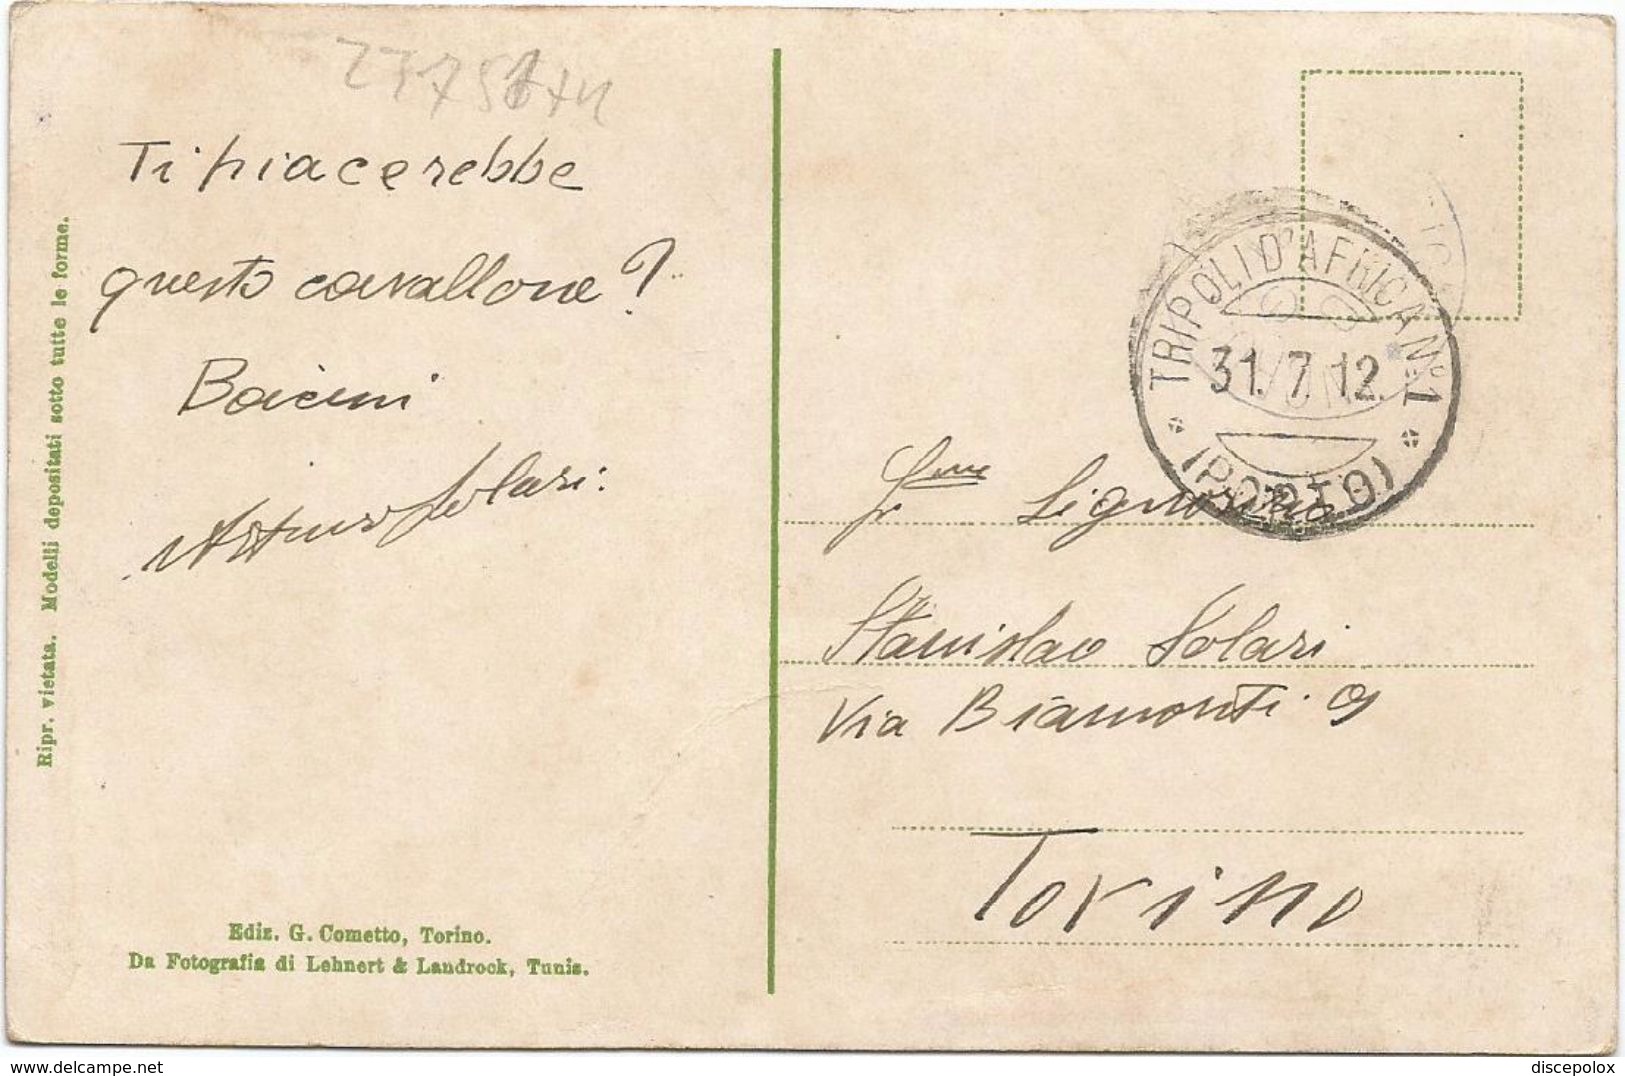 Ti piacerebbe
questo cavallone?
Bacioni
Arturo Solari.
Ripr. vietata. Modelli depositati sotto tutte le forme.
Ediz. G. Cometto, Torino.
Da Fotografia di Lehnert & Landrock, Tunis.
TRIPOLI D'AFRICA Nº1
31.7.12.
(PORTO)
Signorino
Stanislao Solari
Via Biamonti 9
Torino
www.delcampe.net
discepolox